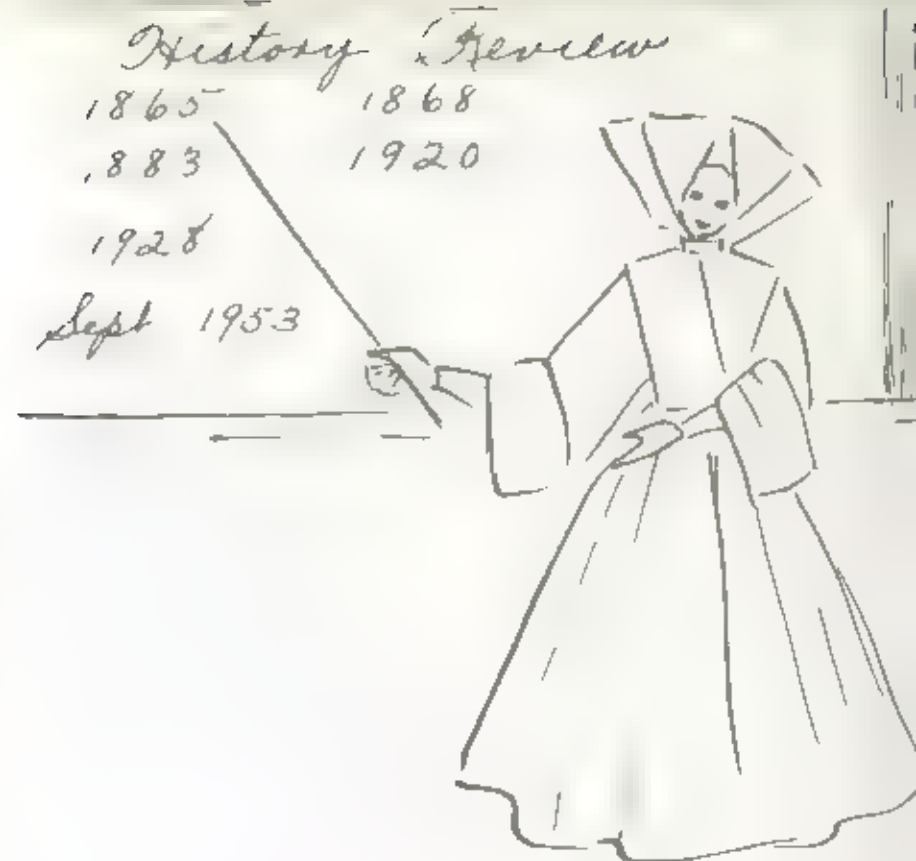 History Review
1865 1868
1883 1920
1928
Sept 1953